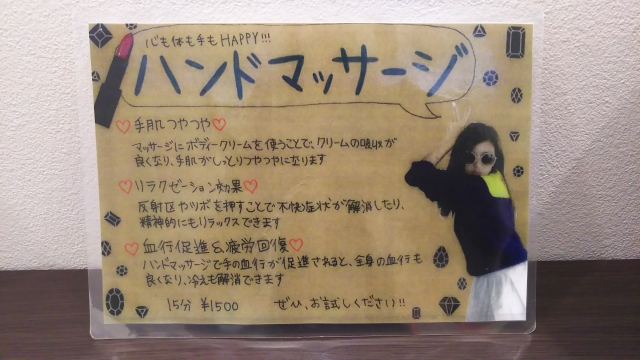 心も体も手もHAPPY!!!
ハンドマッサージ
♡手肌つやつや♡
マッサージにボディークリームを使うことで、クリームの吸収が
良くなり、手肌がしっとりつやつやになります
♡リラクゼーション効果♡
反射区やツボを押すことで不快症状が解消したり、
精神的にもリラックスできます
♡血行促進&疲労回復♡
ハンドマッサージで手の血行が促進されると、全身の血行も
良くなり、冷えも解消できます
15分 ¥1500 ぜひ、お試しください!!